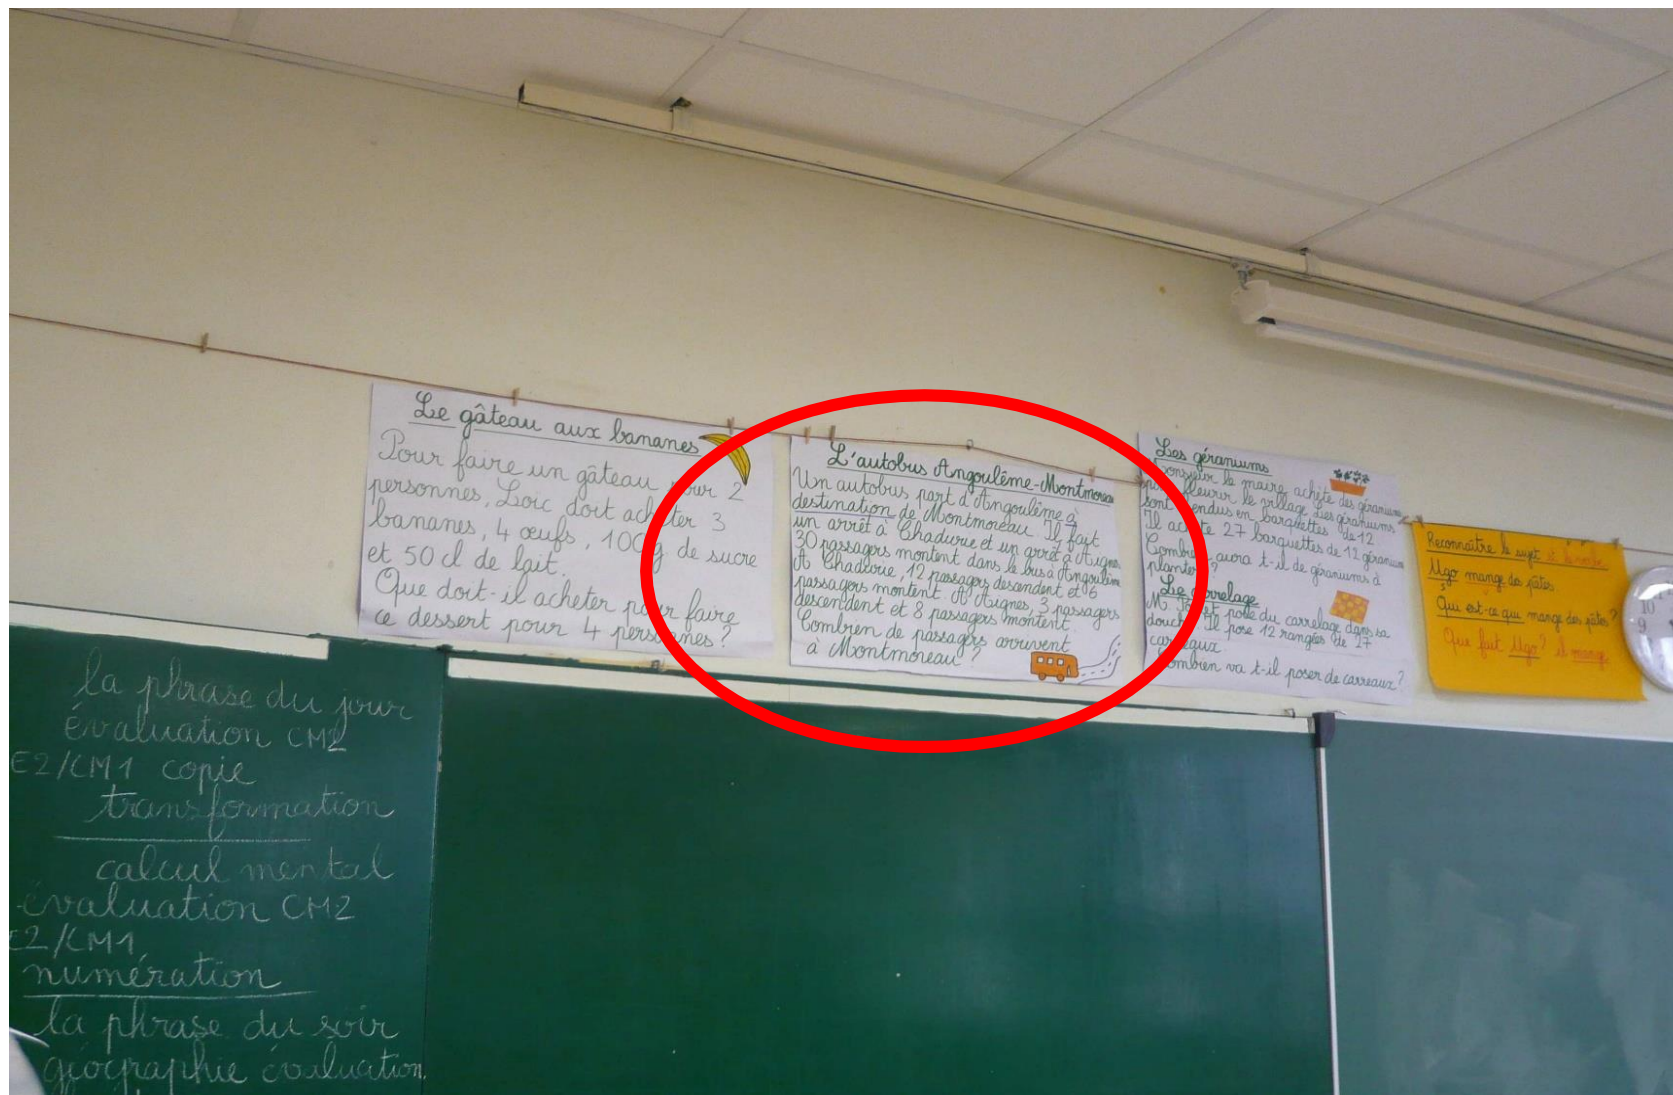 Le gâteau aux bananes
Pour faire un gâteau pour 2
personnes, Loïc doit acheter 3
bananes, 4 œufs, 100g de sucre
et 50 cl de lait.
Que doit-il acheter pour faire
ce dessert pour 4 personnes?
L'autobus Angoulême-Montmoreau
Un autobus part d'Angoulême à
destination de Montmoreau. Il fait
un arrêt à Chadurie et un arrêt à Aignes.
30 passagers montent dans le bus à Angoulême
A Chadurie, 12 passagers descendent et 6
passagers montent. A Aignes, 3 passagers
descendent et 8 passagers montent.
Combien de passagers arrivent
à Montmoreau ?
Les géraniums
Monsieur le maire achète des géraniums
pour fleurir le village. Les géraniums
sont vendus en barquettes de 12
Il achète 27 barquettes de 12 géraniums
Combien aura t-il de géraniums à
planter ?
Le carrelage
M. pose du carrelage dans sa
douche. Il pose 12 rangées de 27
carreaux
Combien va t-il poser de carreaux ?
Reconnaître le sujet et le verbe
Ugo mange des pâtes.
Qui est-ce qui mange des pâtes?
Que fait Ugo? il mange
10
9
la phrase du jour
évaluation CM2
E2/CM1 copie
transformation
calcul mental
évaluation CM2
E2/CM1
numération
la phrase du soir
géographie évaluation